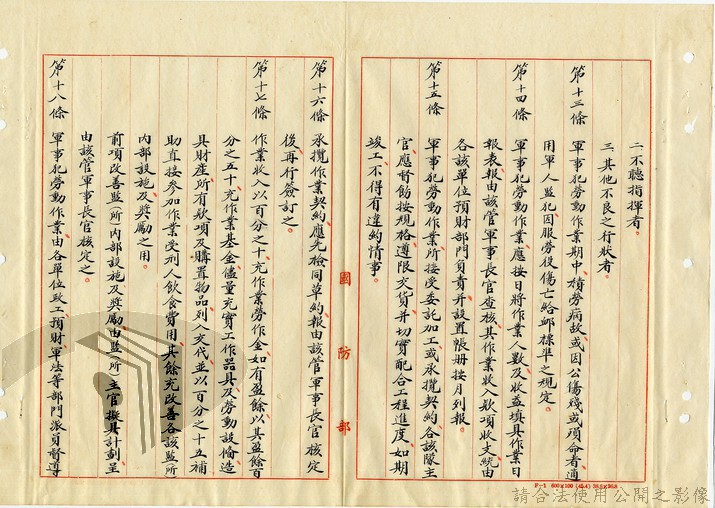 二不聽指揮者。
三其他不良之行狀者。
第十三條　軍事犯勞動作業期中、積勞病故或因公傷殘或殞命者適
用軍人監犯因服勞役傷亡給卹標準之規定。
第十四條　軍事犯勞動作業、應按日將作業人數及收益填具作業日
報表報由該管軍事長官查核其作業收入款項收支統由
各該單位預財部門負責并設置帳册按月列報。
第十五條　軍事犯勞動作業所接受委託加工或承攬契約各該隊主
官應督飭按規格遵限交貨并切實配合工程進度、如期
竣工不得有違約情事。
國防部
第十六條　承攬作業契約應先檢同草約報由該管軍事長官核定
後再行簽訂之。
第十七條　作業收入以百分之十充作業勞作金如有盈餘以其盈餘百
分之五十充作業基金儘量充實工作器具及勞動設備造
具財產所有款項及購置物品列入交代、並以百分之十五補
助直接參加作業受刑人飲食費用其餘充改善各該監所
內部設施及獎勵之用。
前項改善監所內部設施及獎勵由監所主官擬具計劃呈
由該管軍事長官核定之。
第十八條　軍事犯勞動作業由各單位政工預財軍法等部門派員督導
F-1 600×100 (45.4) 38.5×26.8
請合法使用公開之影像